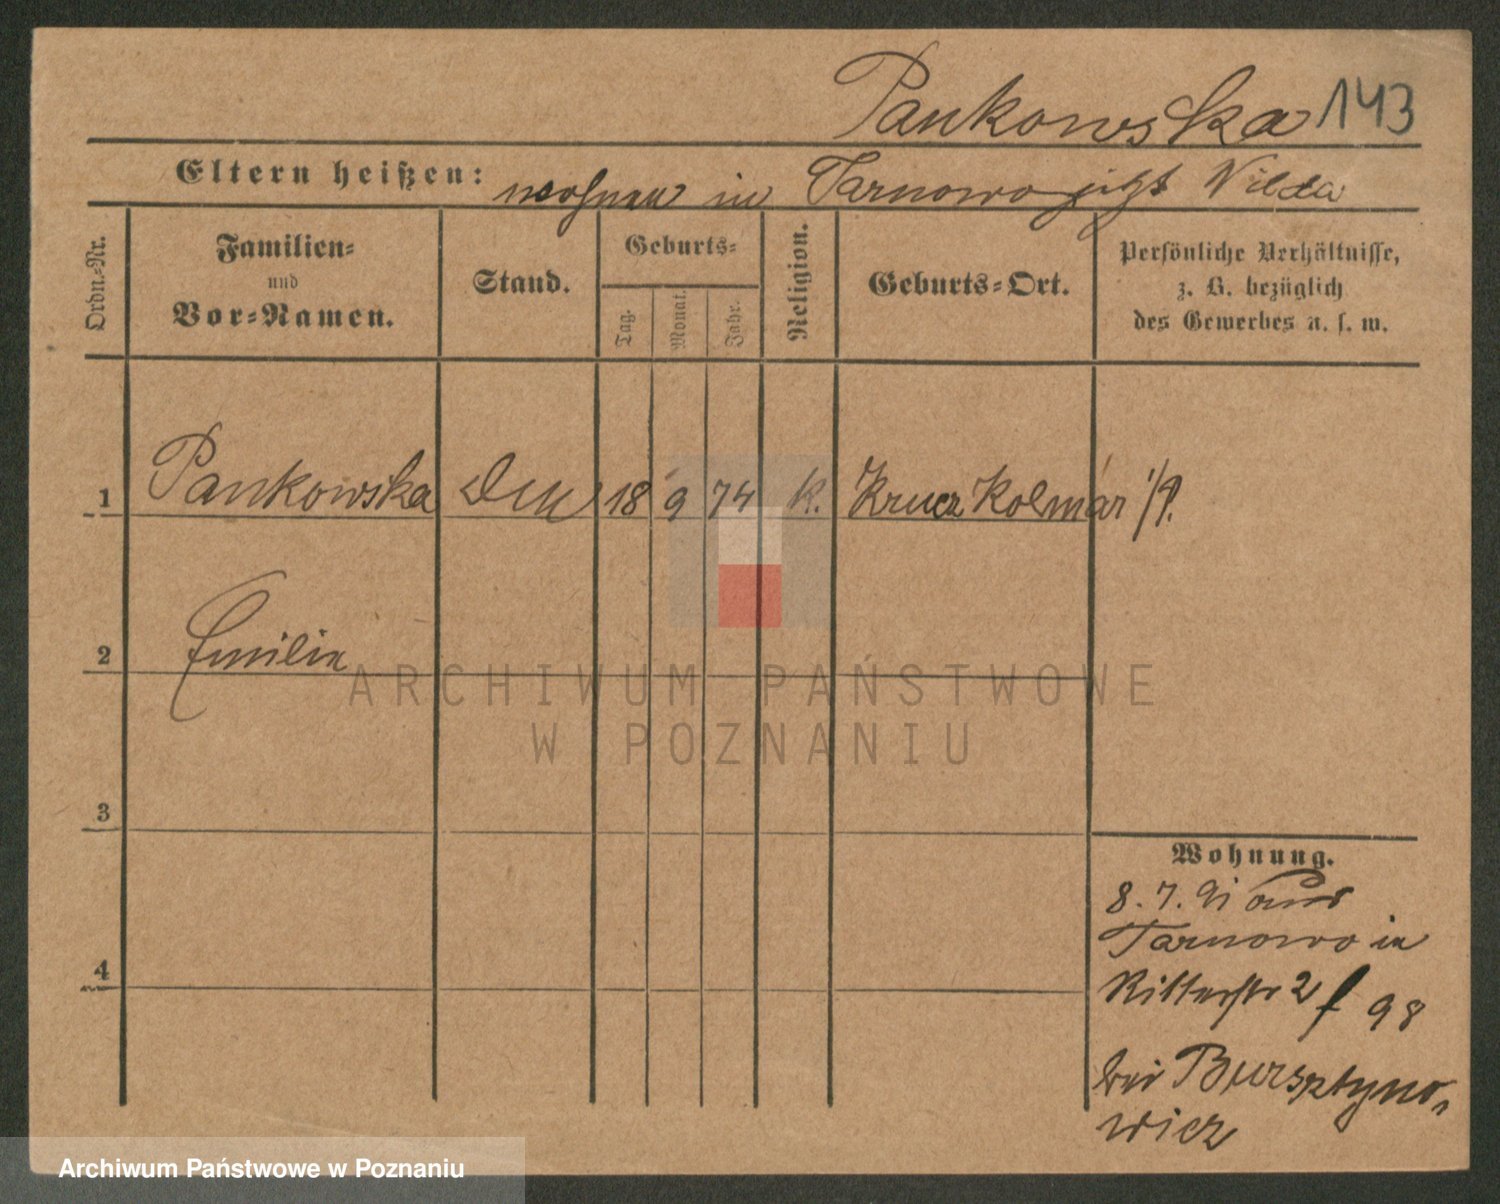 Pankowska 143
Eltern heißen: wohnen in Tarnowo jetzt Wilda
Ordn.-Nr.
Familien-
und
Vor-Namen.
Stand.
Geburts-
Tag.
Monat.
Jahr.
Religion.
Geburts-Ort.
Persönliche Verhältnisse,
z. B. bezüglich
des Gewerbes u. s. w.
1 Pankowska 18 9 74 K. Kolmar i/P.
2 Emilie
3
4
Wohnung.
8. 7. 91 aus
Tarnowo in
Ritterstr 2 f 98
bei Bursztyno-
wicz
ARCHIWUM PAŃSTWOWE
W POZNANIU
Archiwum Państwowe w Poznaniu